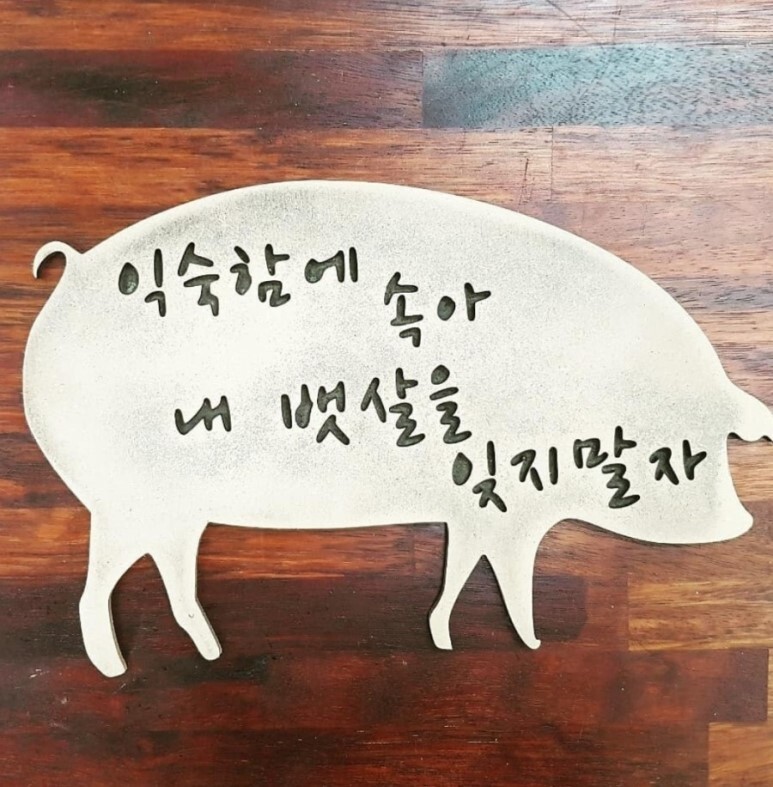 익숙함에 속아
내 뱃살을
잊지말자